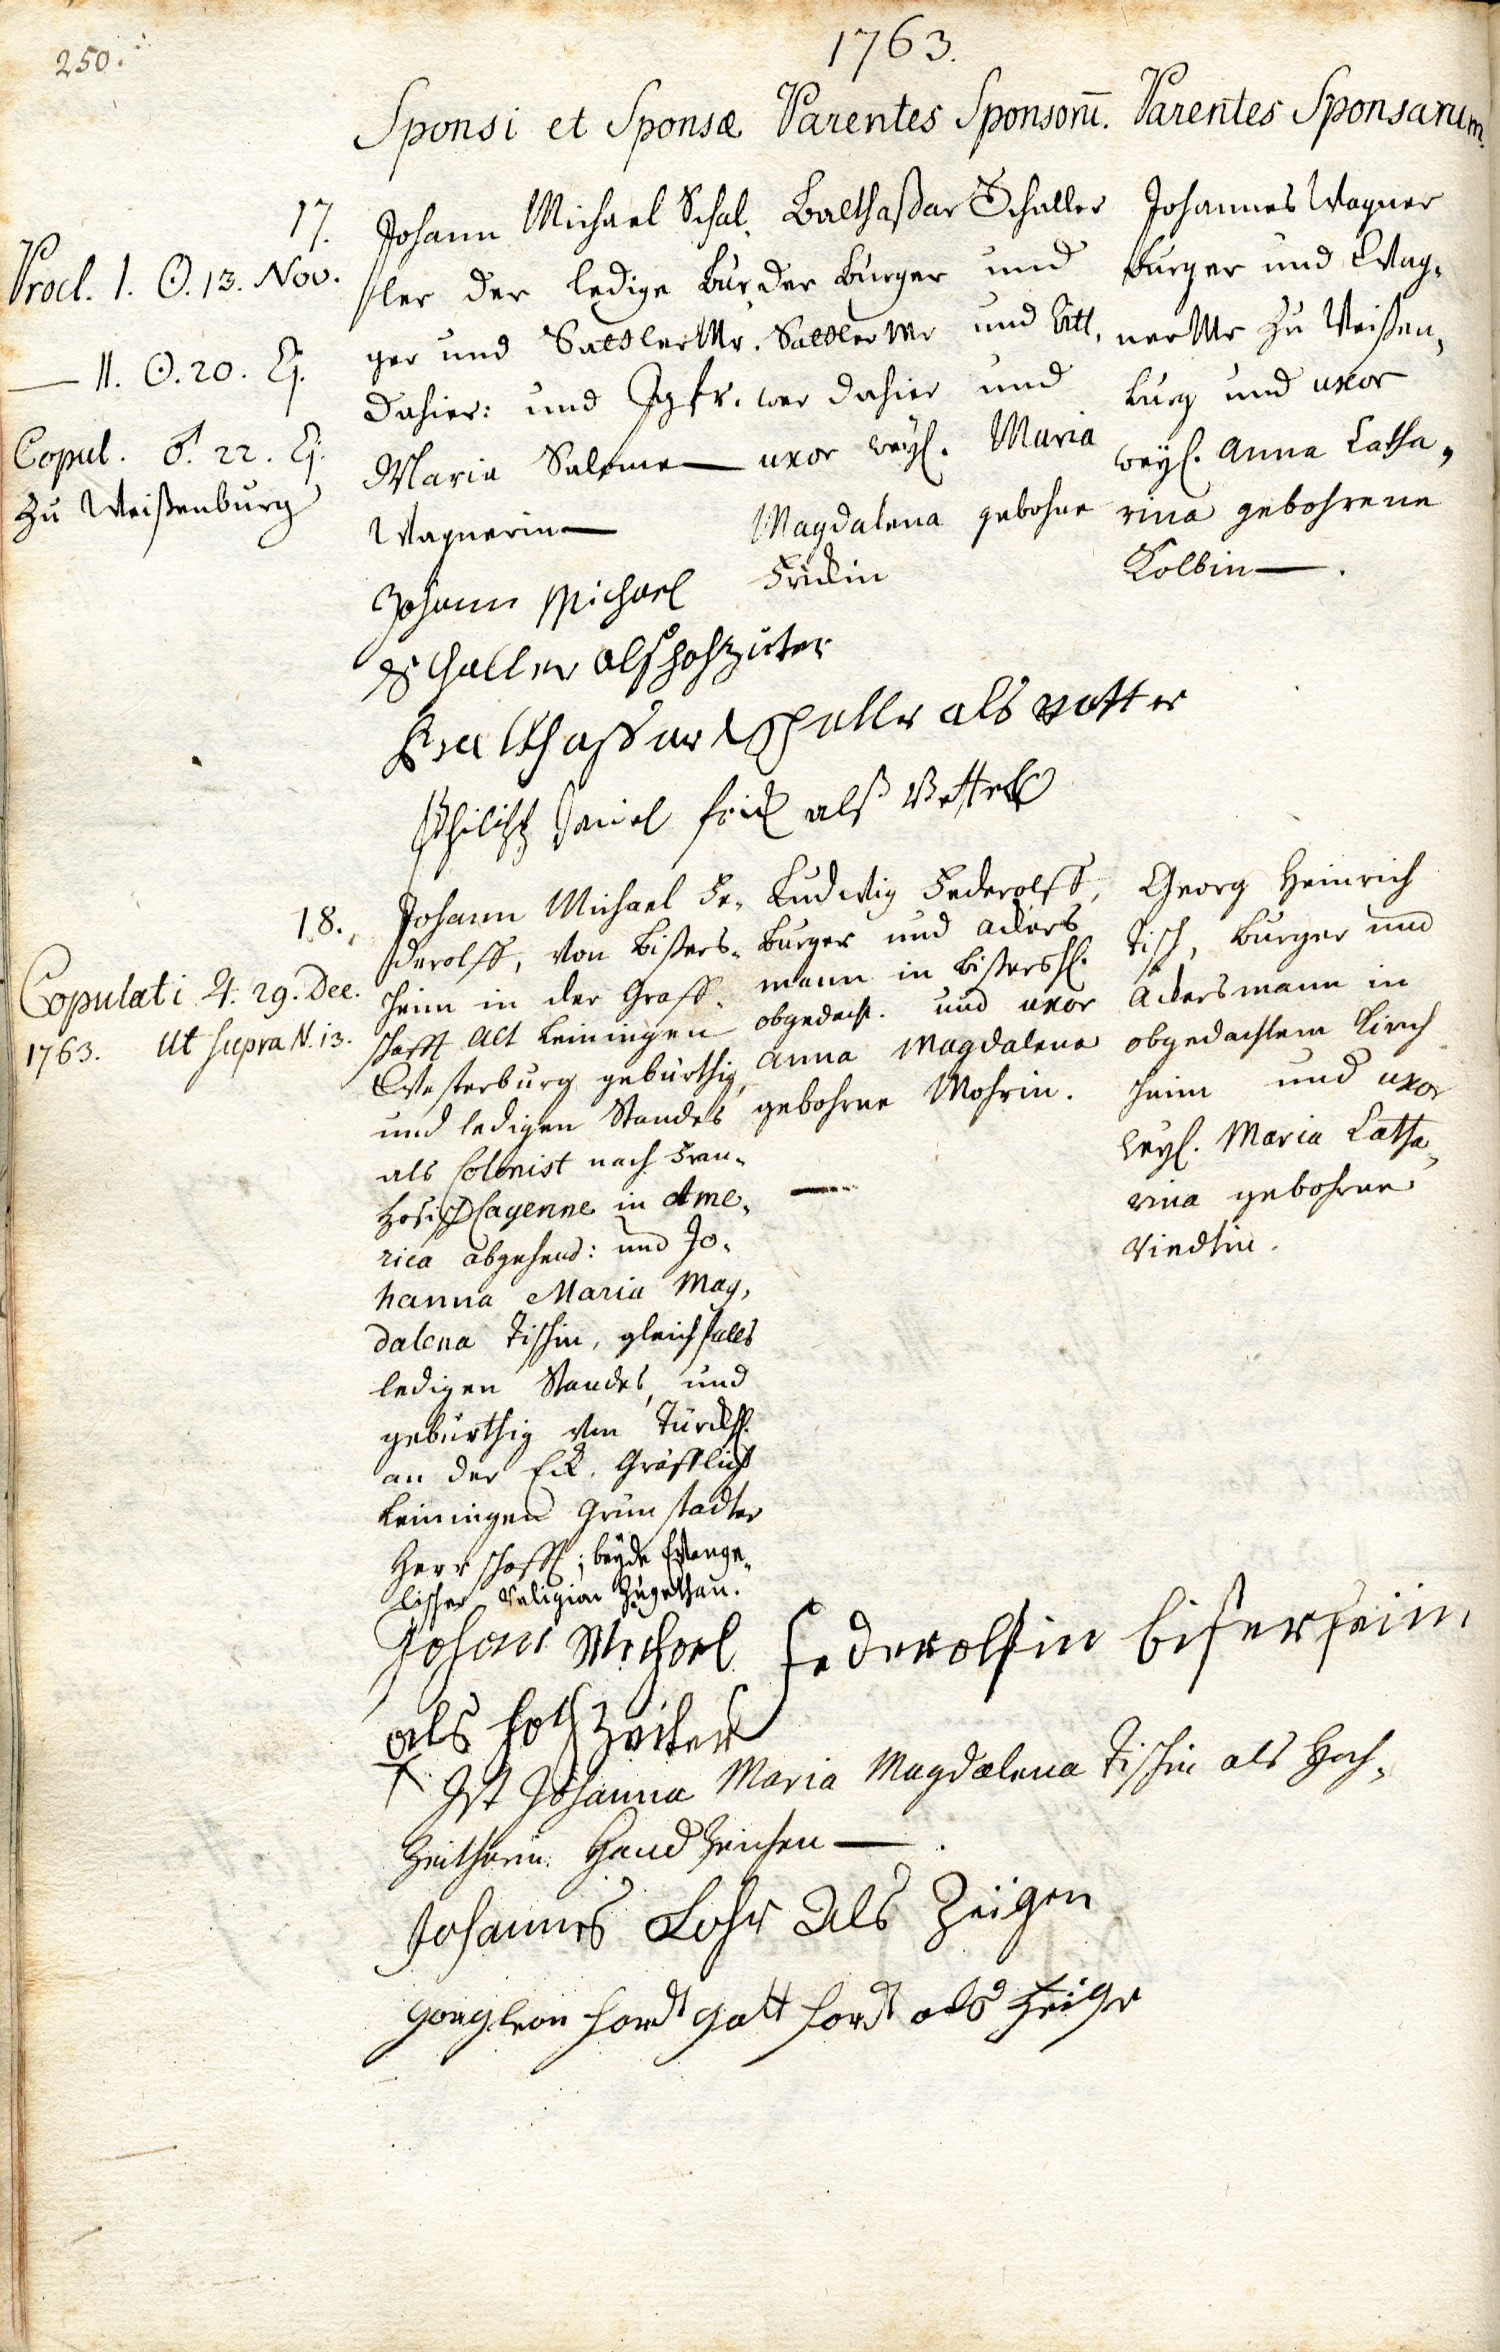 250.
1763.
Sponsi et Sponsæ
Parentes Sponsorū.
Parentes Sponsarum.
17.
Procl. I. ☉. 13. Nov.
— II. ☉. 20. Ej.
Copul. ♂. 22. Ej.
zu Weißenburg
Johann Michael Schal-
ler der ledige Bur-
ger und Sattler Mr.
dahier: und Jgfr.
Maria Salome —
Wagnerin —
Balthaßar Schaller
der Burger und
Sattler Mr und Ält.
dahier und
uxor weyl. Maria
Magdalena gebohrne
Frickin
Johannes Wagner
burger und Wag-
ner Mr zu Weißen-
burg und uxor
weyl. Anna Catha-
rina gebohrene
Kolbin —.
Johann Michael
Schaller als hochzuter
Balthassar Schaller als vatter
Philipp Daniel Frick alß Vetter
18.
Copulati ♃. 29. Dec.
1763. Ut supra N. 13.
Johann Michael Fe-
derolff, von Bißers-
heim in der Graff-
schafft Alt Leiningen
Westerburg gebürthig,
und ledigen Standes
als Colonist nach Fran-
zösisch Cayenne in Ame-
rica abgehend: und Jo-
hanna Maria Mag-
dalena Tischin, gleichfalls
ledigen Standes, und
gebürthig von Türckh.
an der Eck. Gräfflich
Leiningen Grünstadter
Herrschafft; beyde Evange-
lischer Religion zugethan.
Ludwig Federolff,
Burger und Ackers
mann in Bißersh.
obgedacht. und uxor
Anna Magdalena
gebohrne Mohrin.
Georg Heinrich
Tisch, Burger und
Ackersmann in
obgedachtem Kirch
heim und uxor
weyl. Maria Catha-
rina gebohrne
Johann Michael Federolf in bisersheim
als hochzeiter
+ Ist Johanna Maria Magdalena Tischin als Hoch-
zeitherin Handzeichen —.
Johannes Lohr Als Zeigen
als Zeige